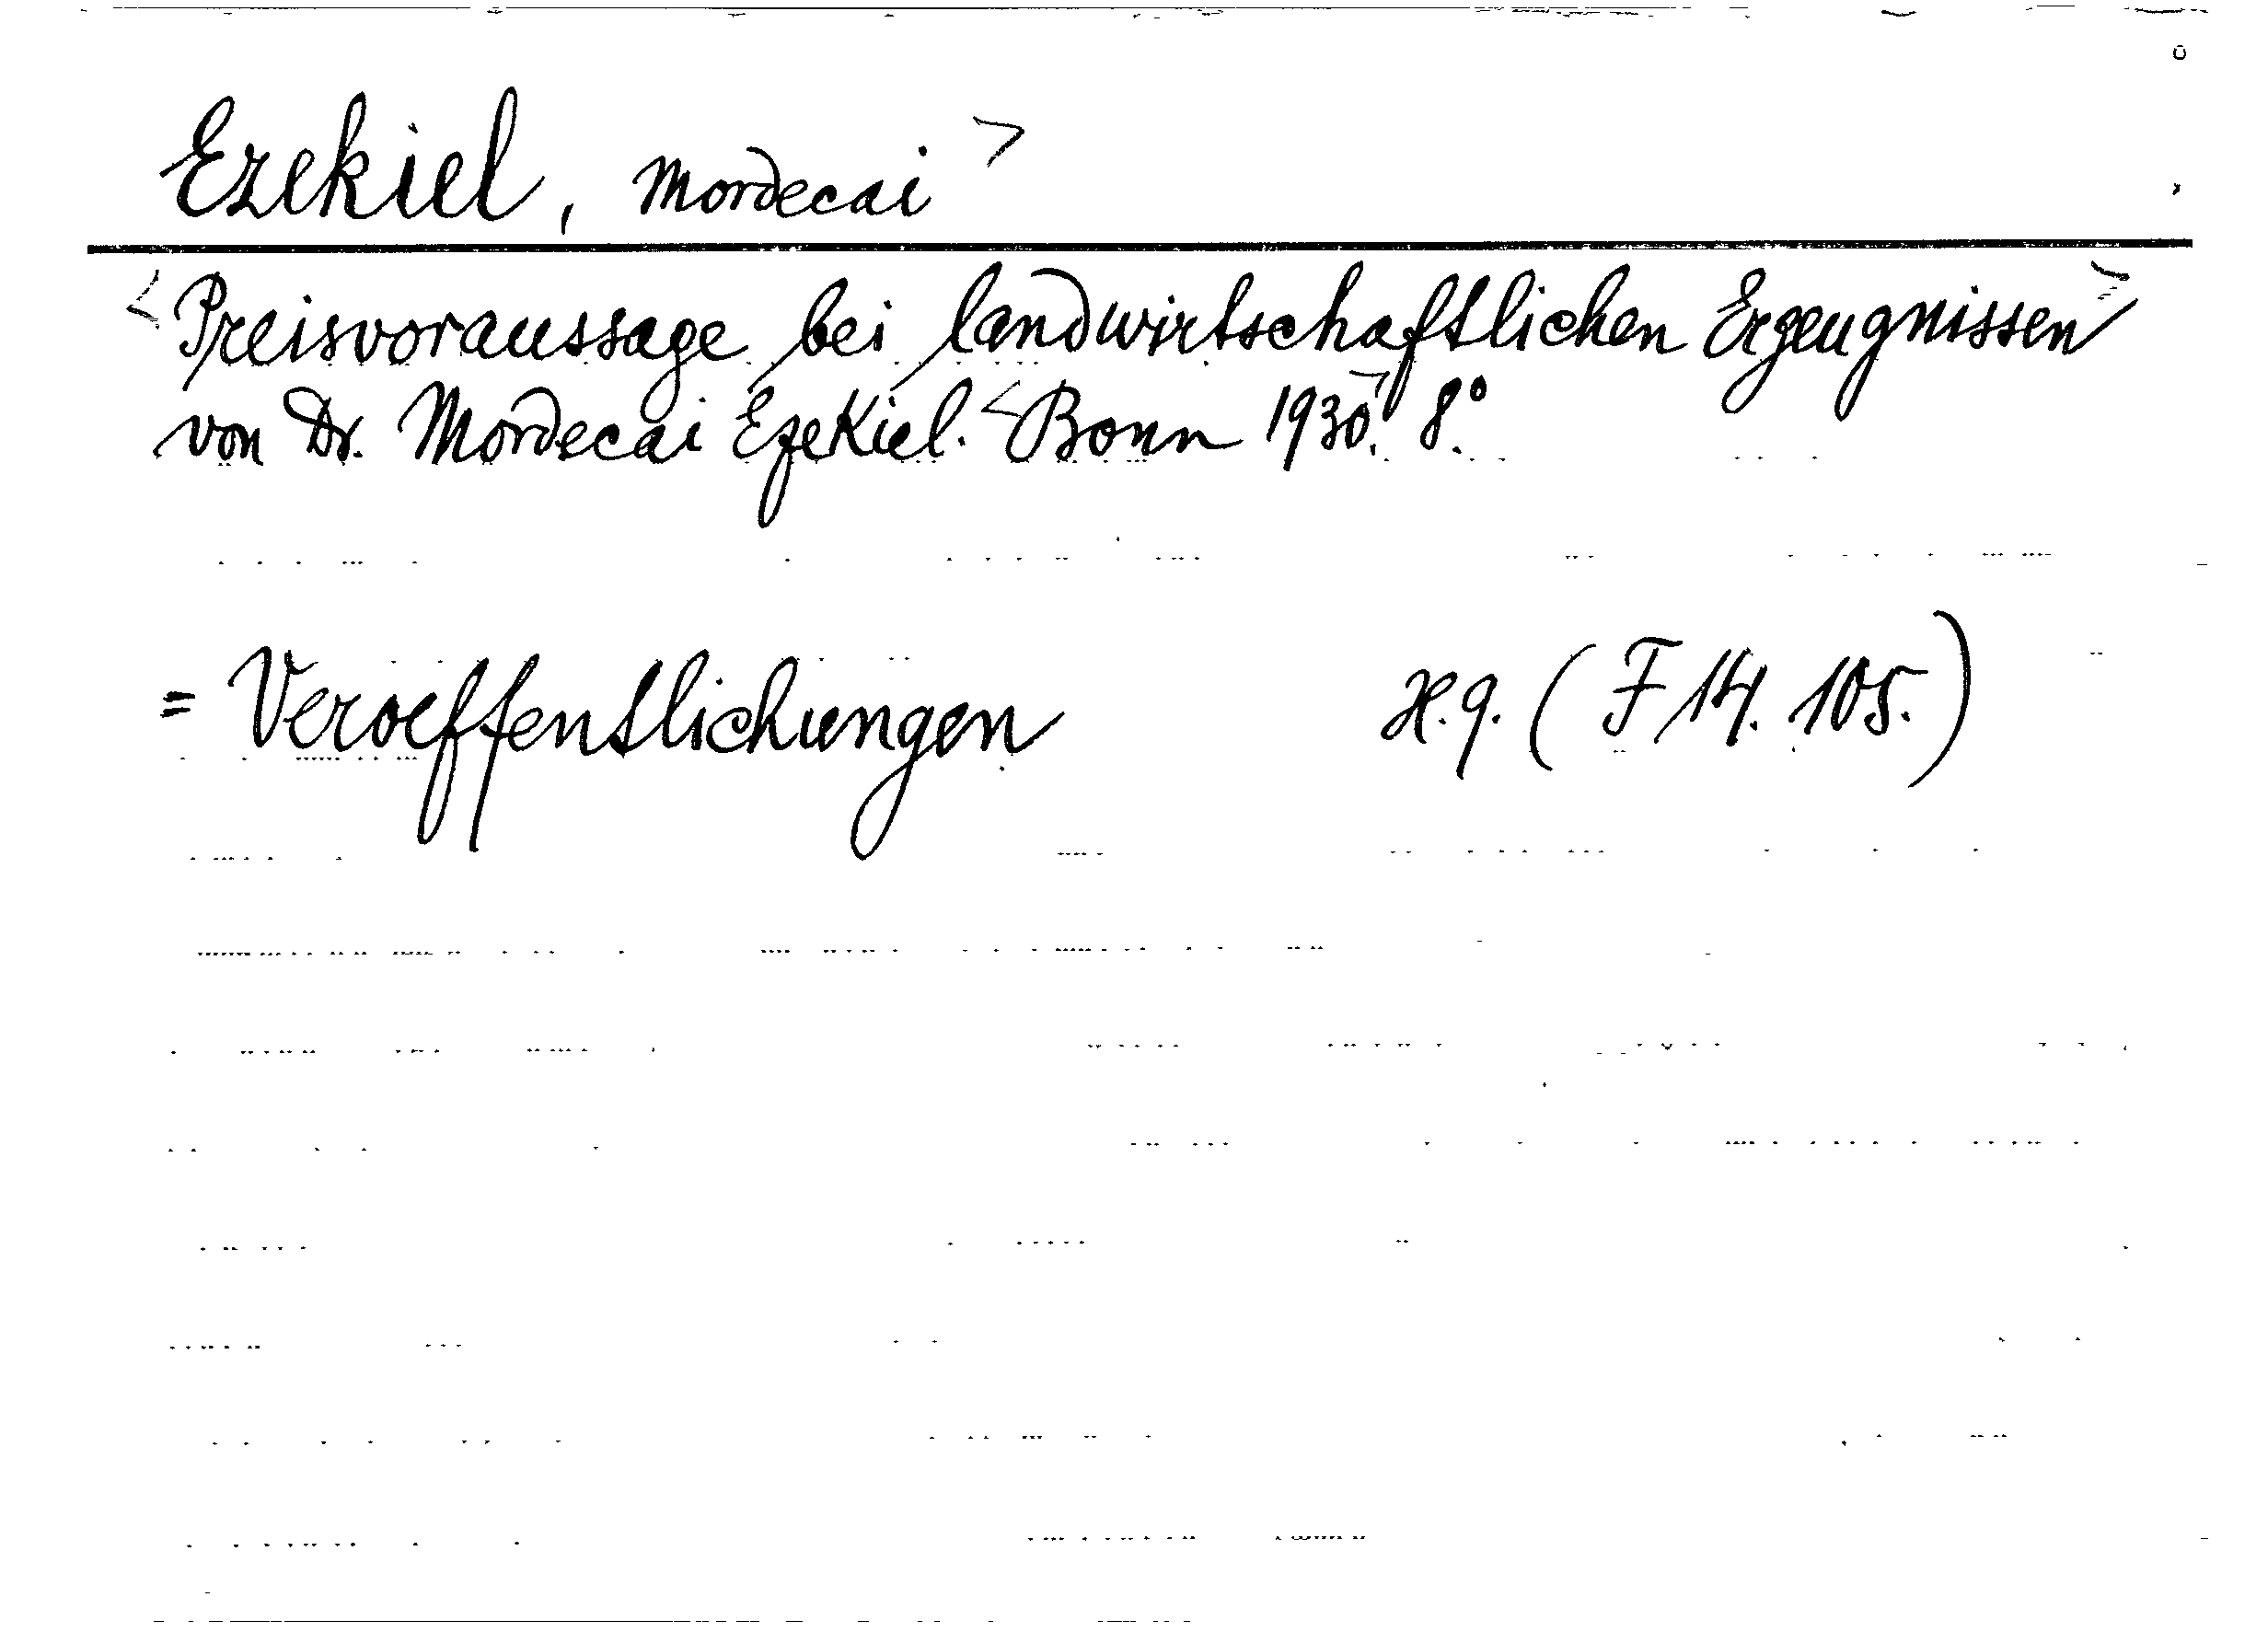 Ezekiel, Mordecai >
< Preisvoraussage bei landwirtschaftlichen Erzeugnissen >
von Dr. Mordecai Ezekiel. < Bonn 1930. > 8.°
= Veroeffentlichungen H.q. (F 14. 105.)